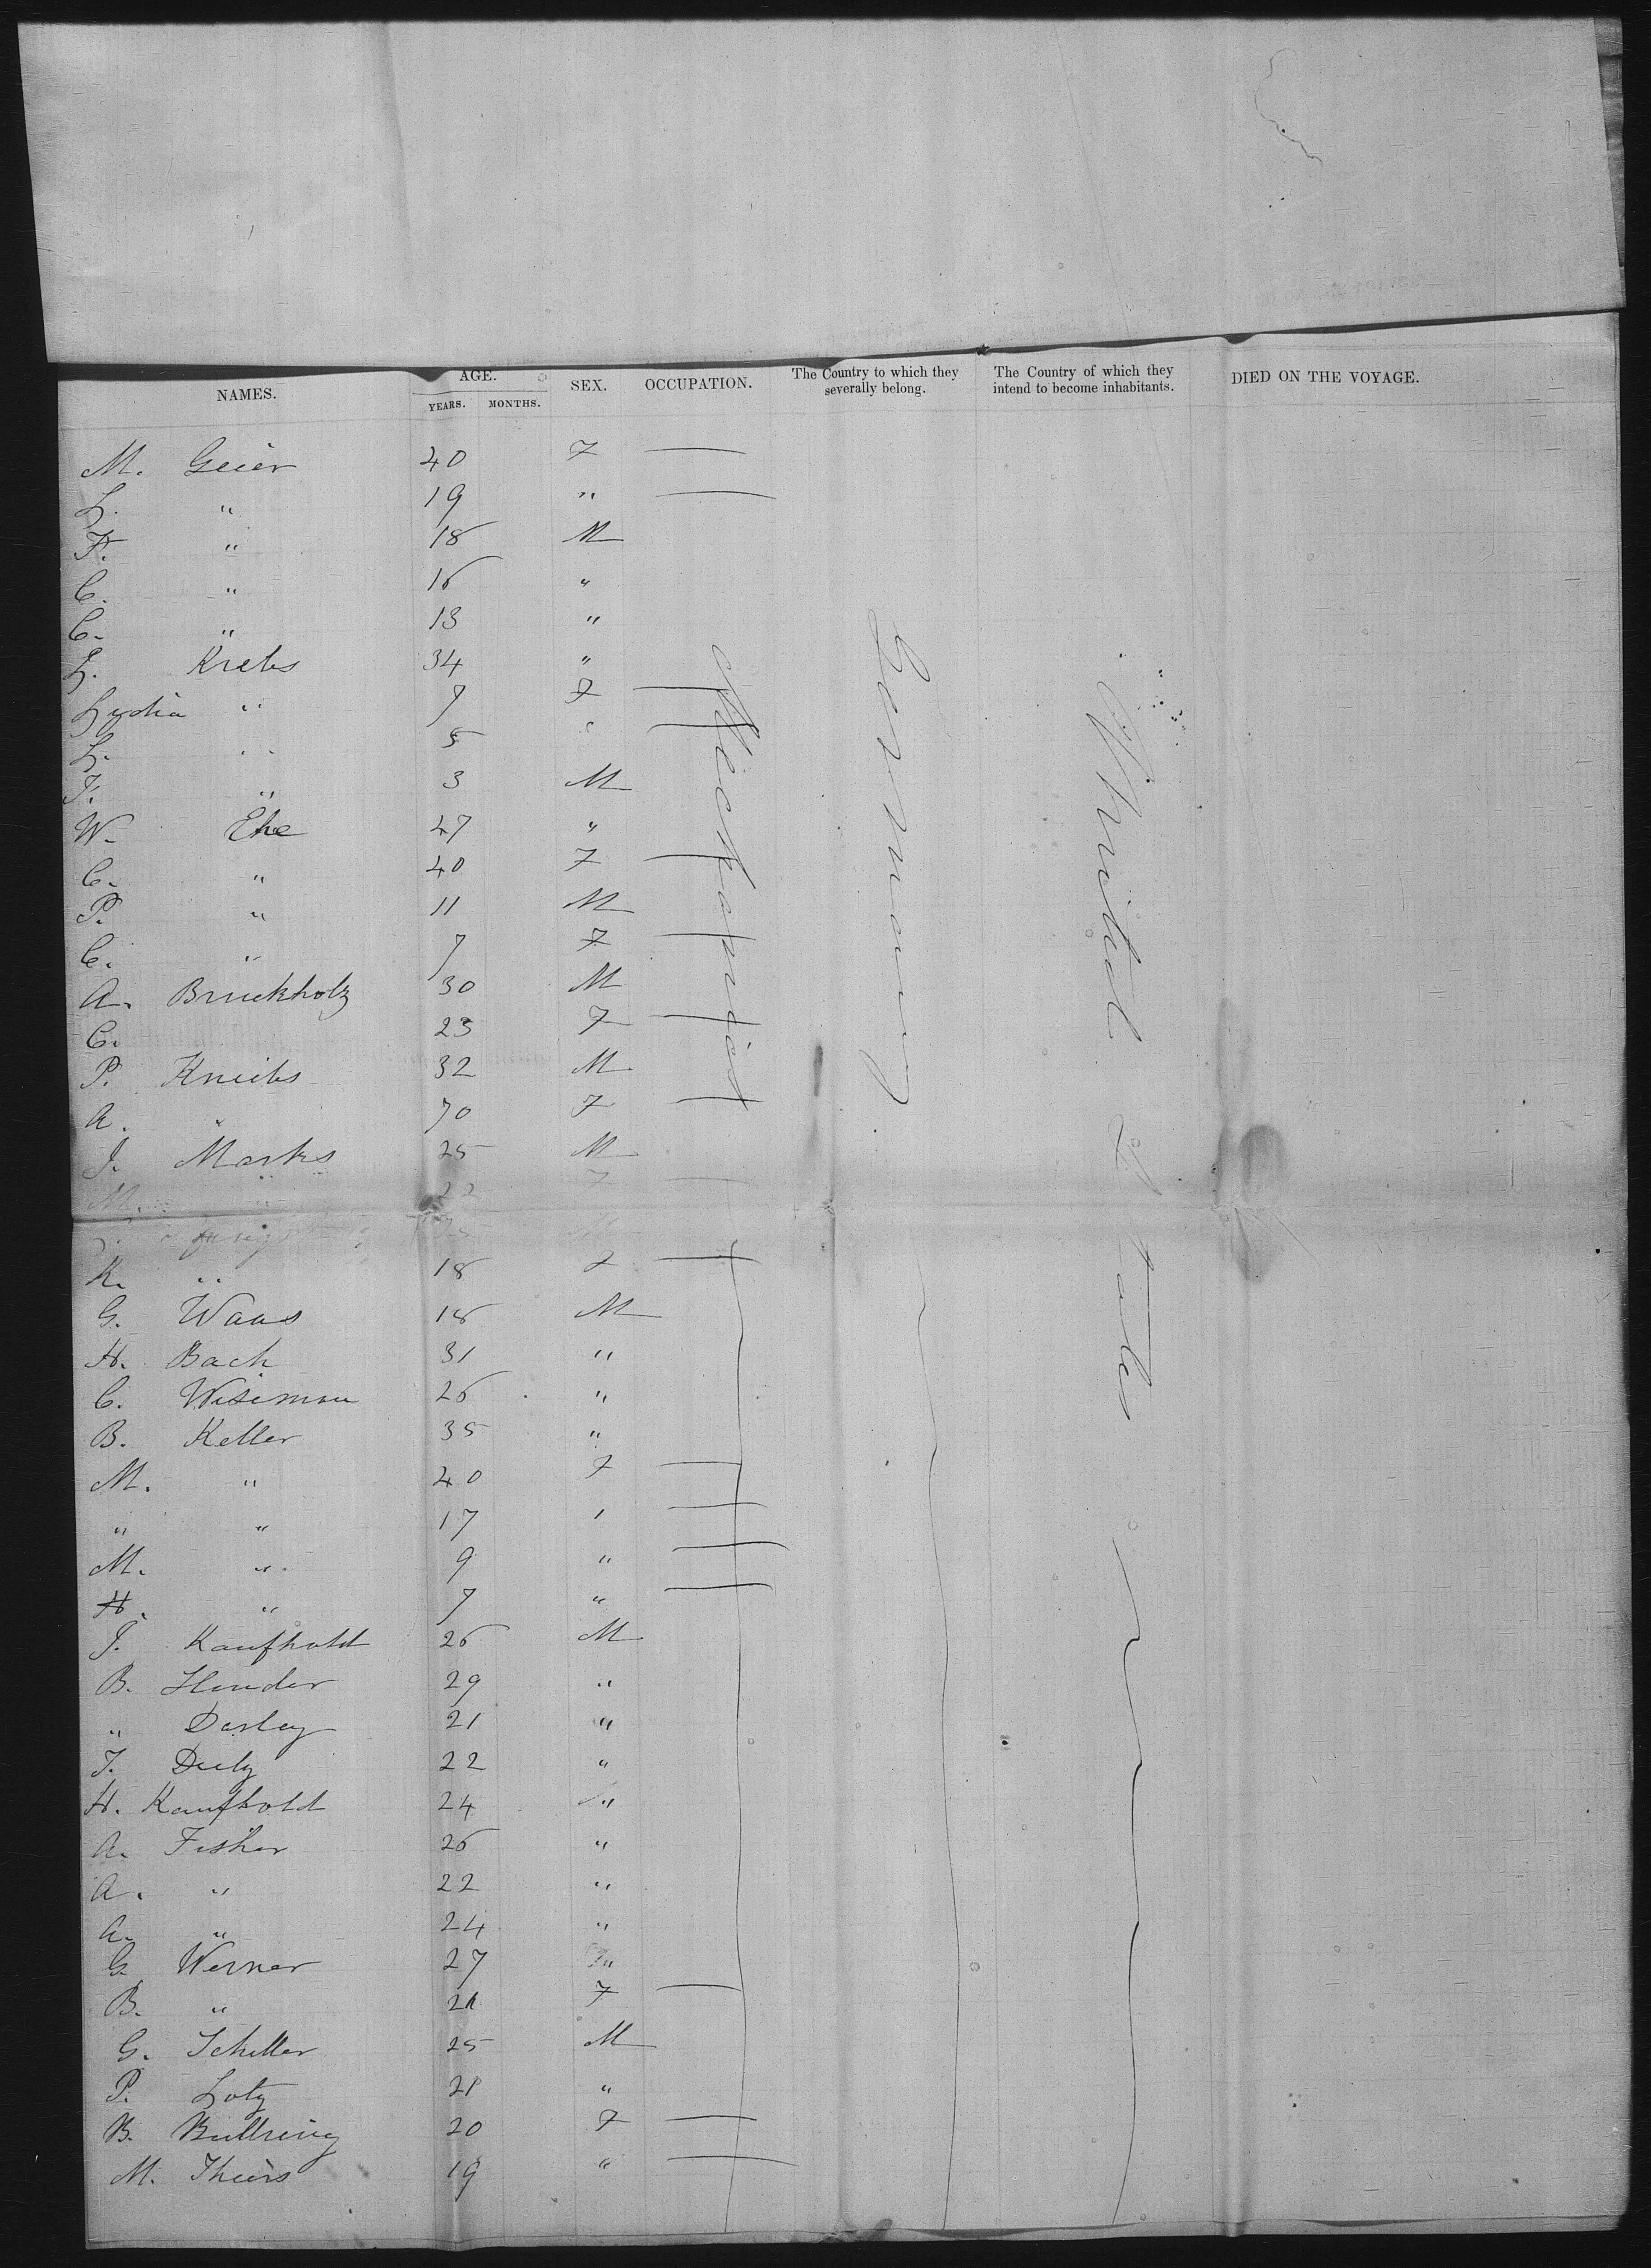 NAMES. AGE. SEX. OCCUPATION. The Country to which they severally belong. The Country of which they intend to become inhabitants. DIED ON THE VOYAGE.
YEARS. MONTHS.
M. Geier 40 F —
L. " 19 " —
F. " 18 M
C. " 16 "
C. " 13 "
L. Krebs 34 "
Lydia " 7 F —
L. " 5 " —
F. " 3 M
W. Ehe 47 "
C. " 40 F —
P. " 11 M
C. " 7 F —
A. Bruckholz 30 M
C. 23 F —
P. Kneibs 32 M
A. " 70 F —
J. Marks 25 M
M. " 22 F —
M
K. " 18 F —
G. Waas 18 M
H. Bach 31 "
C. Wiseman 26 "
B. Keller 35 "
M. " 40 F —
" " 17 " —
M. " 9 " —
H. " 7 " —
J. Kaufhold 26 M
B. Hender 29 "
" Dasley 21 "
J. Duly 22 "
H. Kaufhold 24 "
A. Fisher 26 "
A. " 22 "
A. " 24 "
G. Werner 27 "
B. " 21 F —
G. Schiller 25 M
P. Loty 21 "
B. Bullring 20 F —
M. Theirs 19 " —
Mechanics
Germany
United States